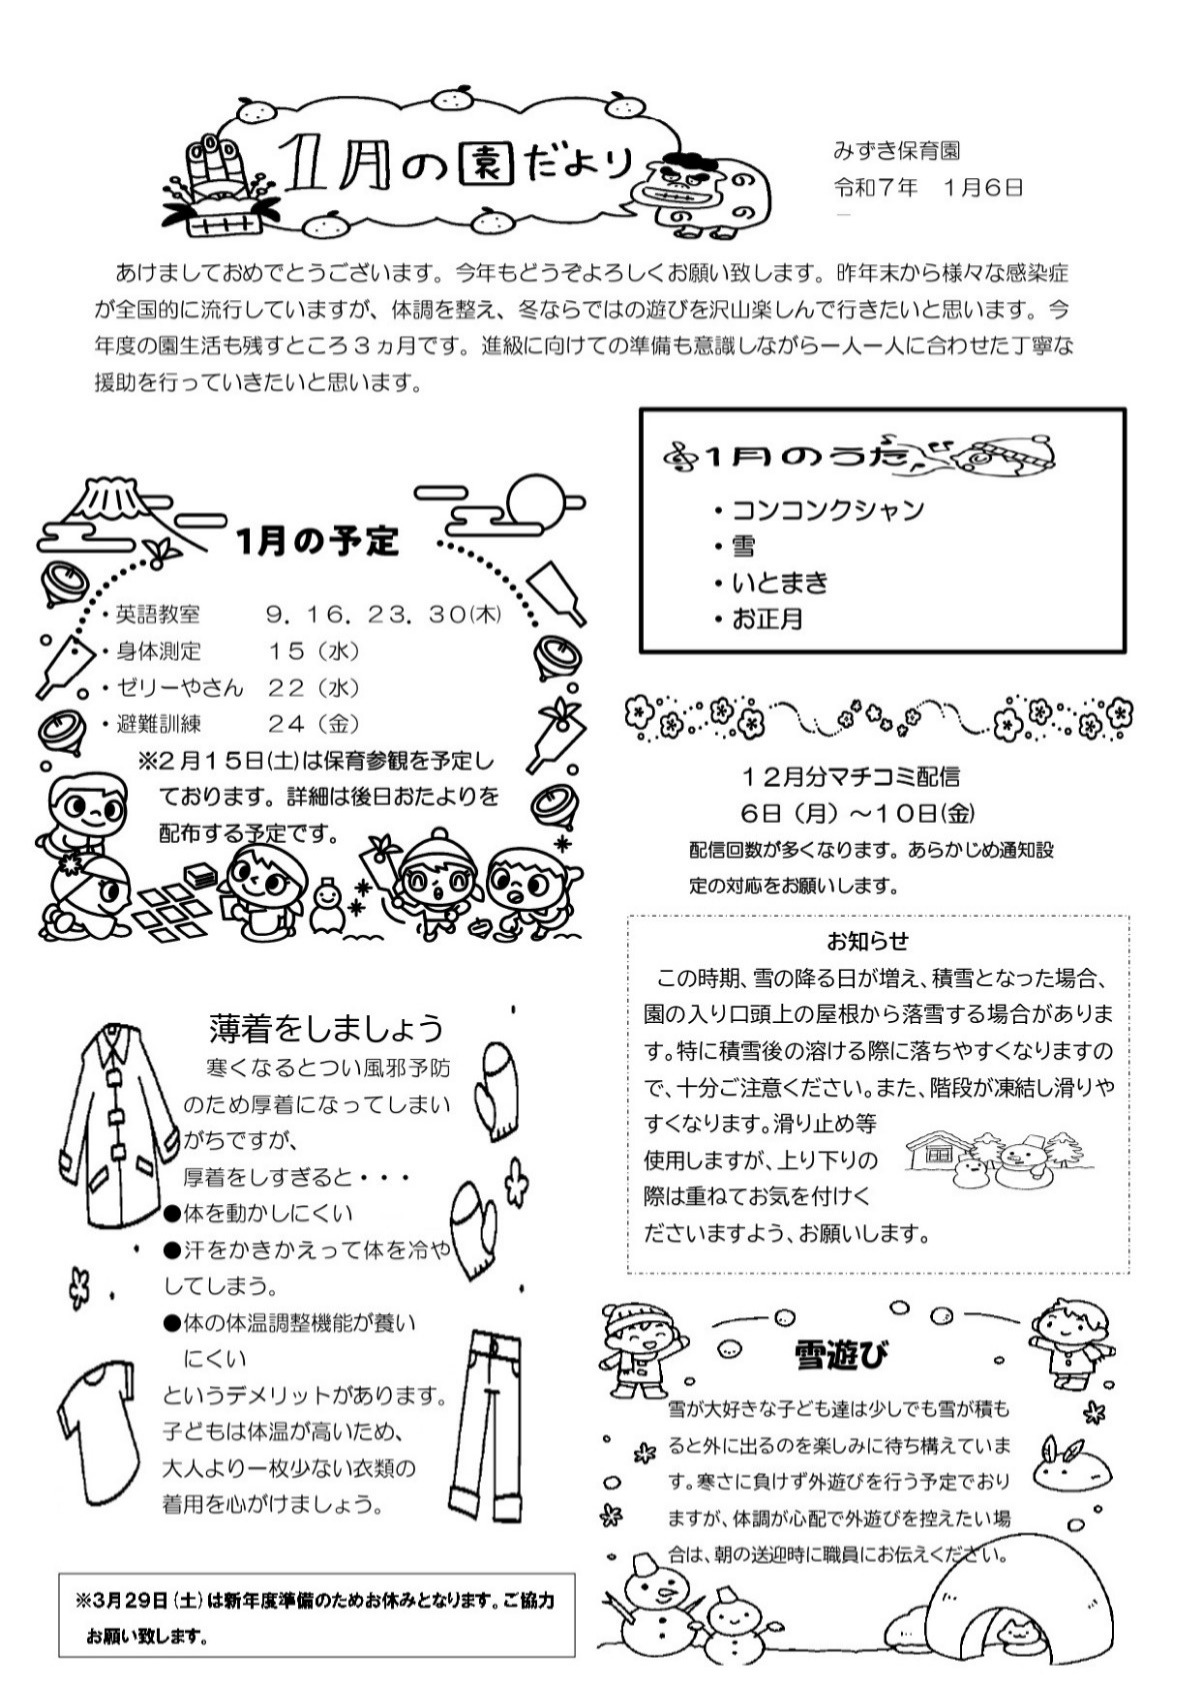 1月の園だより
みずき保育園
令和7年　1月6日
あけましておめでとうございます。今年もどうぞよろしくお願い致します。昨年末から様々な感染症
が全国的に流行していますが、体調を整え、冬ならではの遊びを沢山楽しんで行きたいと思います。今
年度の園生活も残すところ３ヵ月です。進級に向けての準備も意識しながら一人一人に合わせた丁寧な
援助を行っていきたいと思います。
1月のうた
・コンコンクシャン
・雪
・いとまき
・お正月
1月の予定
・英語教室　９．１６．２３．３０(木)
・身体測定　１５（水）
・ゼリーやさん　２２（水）
・避難訓練　２４（金）
※２月１５日(土)は保育参観を予定し
ております。詳細は後日おたよりを
配布する予定です。
１２月分マチコミ配信
６日（月）～１０日(金)
配信回数が多くなります。あらかじめ通知設
定の対応をお願いします。
お知らせ
この時期、雪の降る日が増え、積雪となった場合、
園の入り口頭上の屋根から落雪する場合がありま
す。特に積雪後の溶ける際に落ちやすくなりますの
で、十分ご注意ください。また、階段が凍結し滑りや
すくなります。滑り止め等
使用しますが、上り下りの
際は重ねてお気を付けく
ださいますよう、お願いします。
薄着をしましょう
寒くなるとつい風邪予防
のため厚着になってしまい
がちですが、
厚着をしすぎると・・・
●体を動かしにくい
●汗をかきかえって体を冷や
してしまう。
●体の体温調整機能が養い
にくい
というデメリットがあります。
子どもは体温が高いため、
大人より一枚少ない衣類の
着用を心がけましょう。
雪遊び
雪が大好きな子ども達は少しでも雪が積も
ると外に出るのを楽しみに待ち構えていま
す。寒さに負けず外遊びを行う予定でおり
ますが、体調が心配で外遊びを控えたい場
合は、朝の送迎時に職員にお伝えください。
※3月29日（土）は新年度準備のためお休みとなります。ご協力
お願い致します。